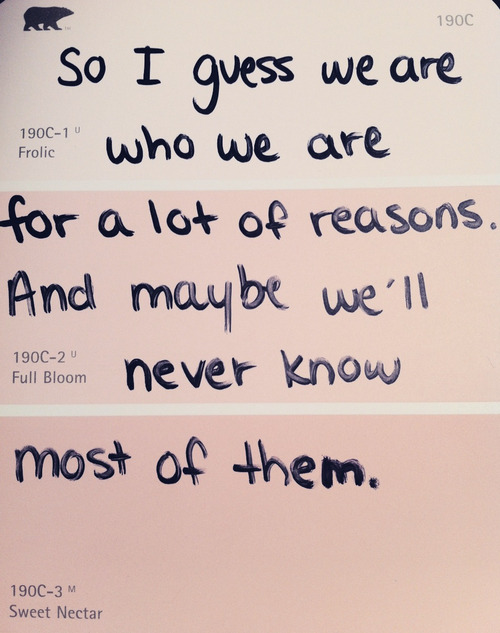 190C
So I guess we are
190C-1 U
Frolic
who we are
for a lot of reasons.
And maybe we'll
190C-2 U
Full Bloom
never know
most of them.
190C-3 M
Sweet Nectar